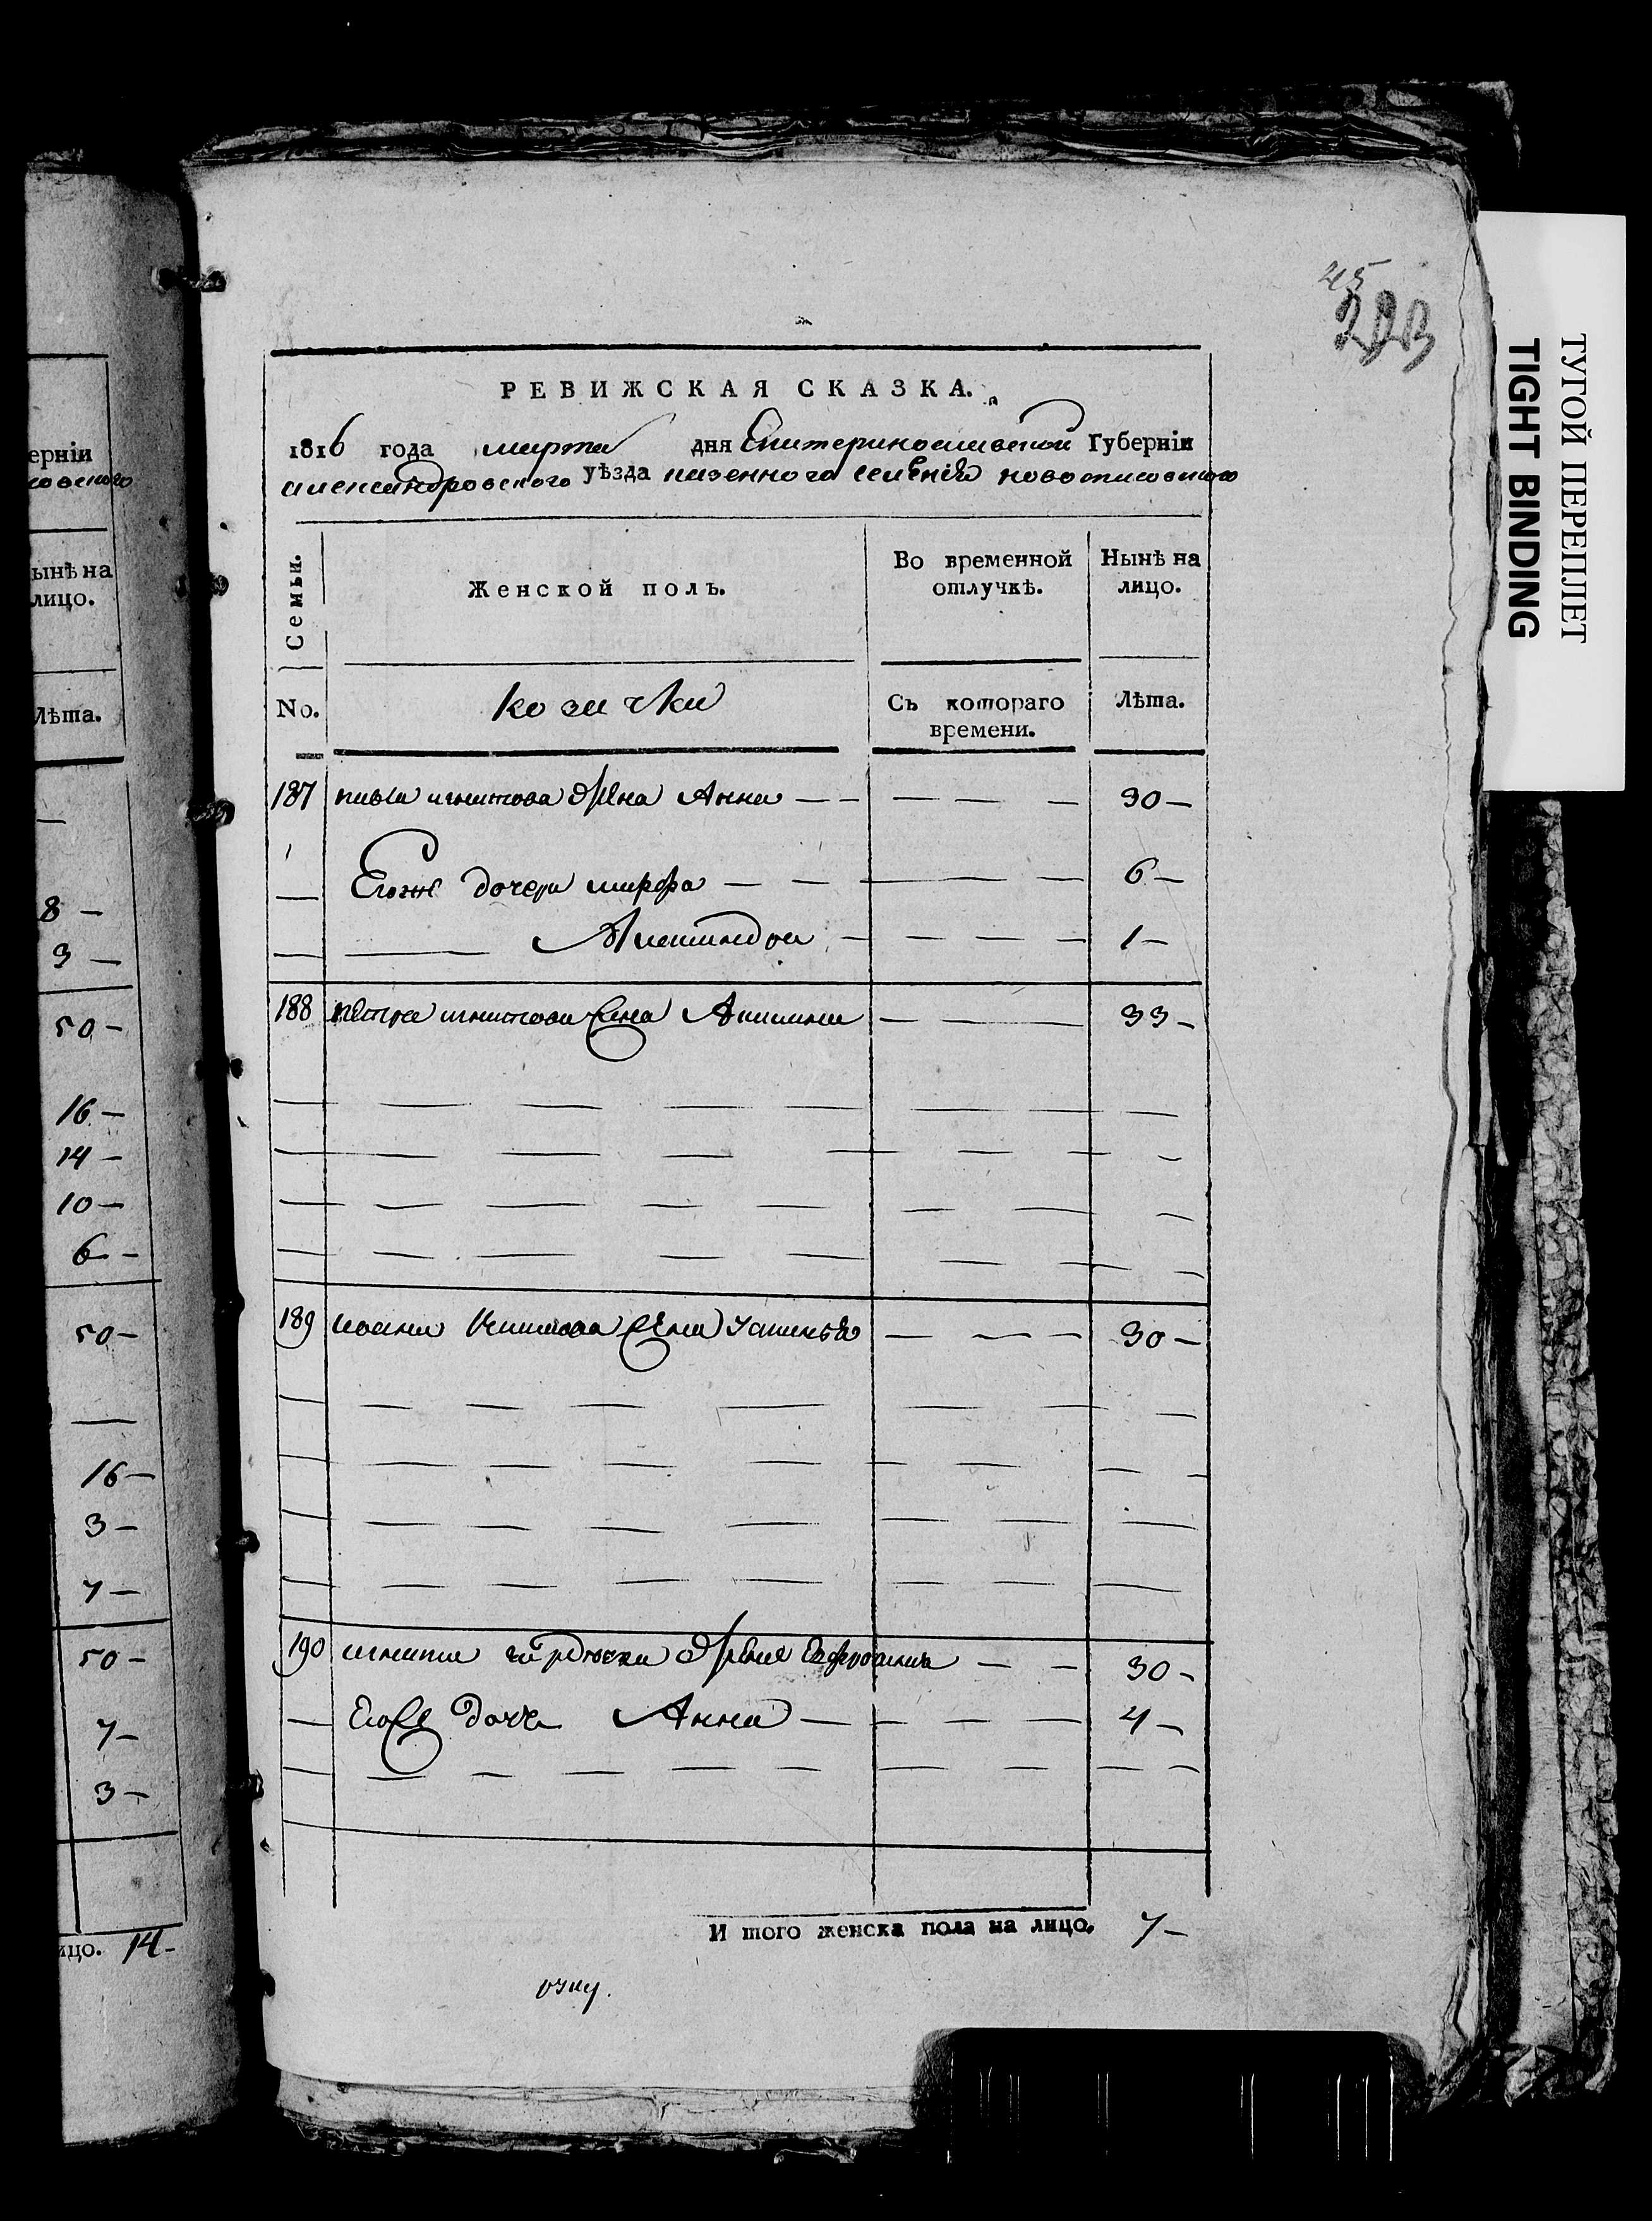 45
РЕВИЖСКАЯ СКАЗКА.
1816 года марта дня Екатеринославской Губерніи
александровского уѣзда казенного селенія новотисовского
Семьи.
Женской полъ.
Во временной отлучкѣ.
Нынѣ на лицо.
No.
козачки
Съ котораго времени.
Лѣта.
187 павла игнатова жена Анна — — — — — 30 —
Егоже дочери марфа — — — — — 6 —
— Александра — — — — 1 —
188 петра игнатова жена Акилина — — — 33 —
189 иоанна жена устинья — — — 30 —
190 игната жена Евфросинья — — 30 —
Егоже дочь Анна — — — — 4 —
И того женска пола на лицо. 7 —
ерніи
ынѣ на
лицо.
Лѣта.
8 —
3 —
50 —
16 —
14 —
10 —
6 —
50 —
16 —
3 —
7 —
50 —
7 —
3 —
ицо. 14 —
ТУГОЙ ПЕРЕПЛЕТ
TIGHT BINDING